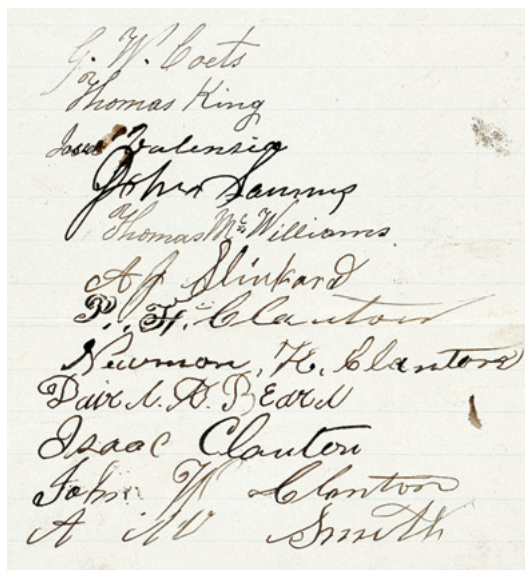 G. W. Coets
Thomas King
Valensia
John
Thomas Mc Williams.
A J Slinkard
P. H. Clanton
Newmon, H, Clanton
David. A. Beard
Isaac Clanton
John W Clanton
A W Smith